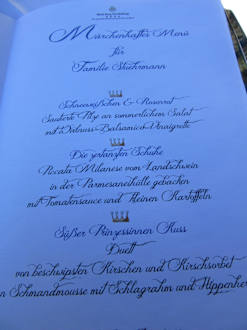 Märchenhaftes Menü
für
Familie Stuehrmann
Schneeweißchen & Rosenrot
Sautierte Pilze an sommerlichem Salat
mit Walnuss-Balsamico-Vinaigrette
Die zertanzten Schuhe
Piccata Milanese vom Landschwein
in der Parmesaneihülle gebacken
mit Tomatensauce und kleinen Kartoffeln
Süßer Prinzessinnen Kuss
Duett
von beschwipsten Kirschen und Kirschsorbet
an Schmandmousse mit Schlagrahm und Hippenherz